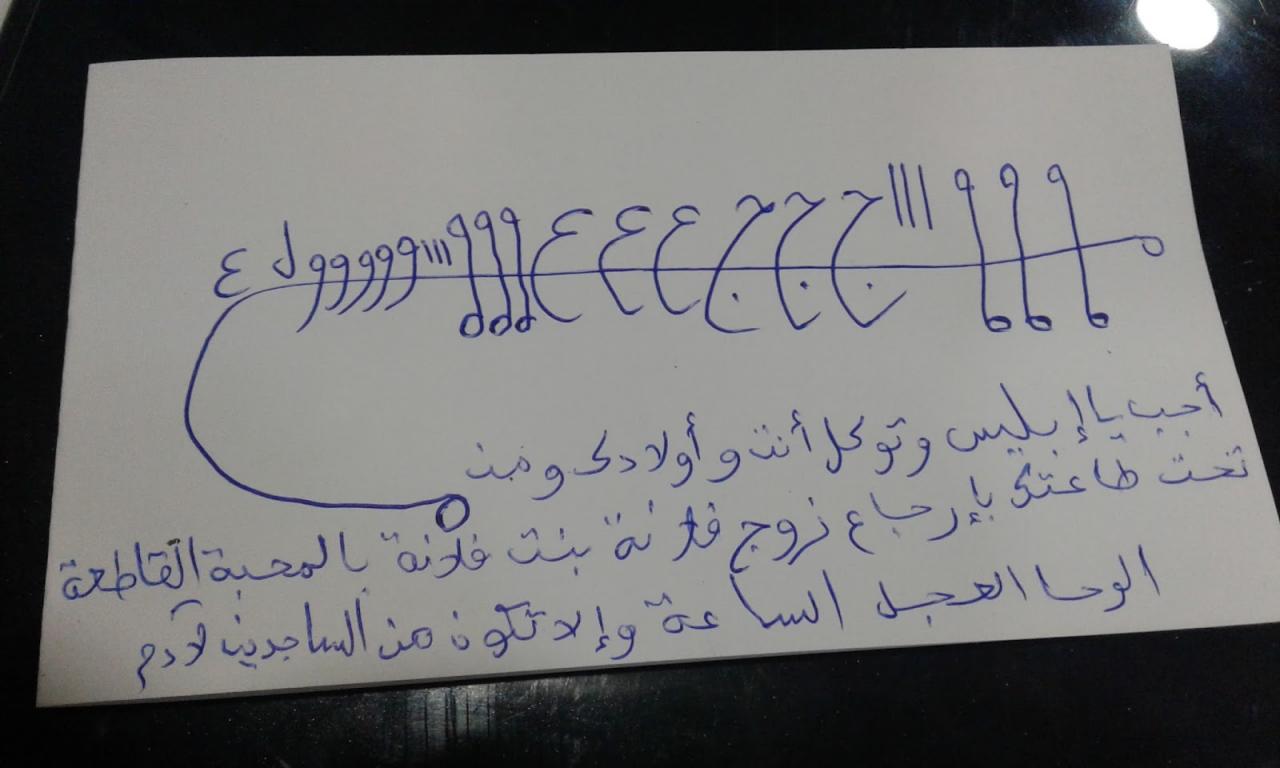 و و و ااا ج ج ج ع ع ع و و و ااا و و و و و ل ع
أجب يا إبليس وتوكل أنت وأولادك ومن
تحت طاعتك بإرجاع زوج فلانة بنت فلانة بالمحبة القاطعة
الوحا العجل الساعة وإلا تكون من الساجدين لآدم